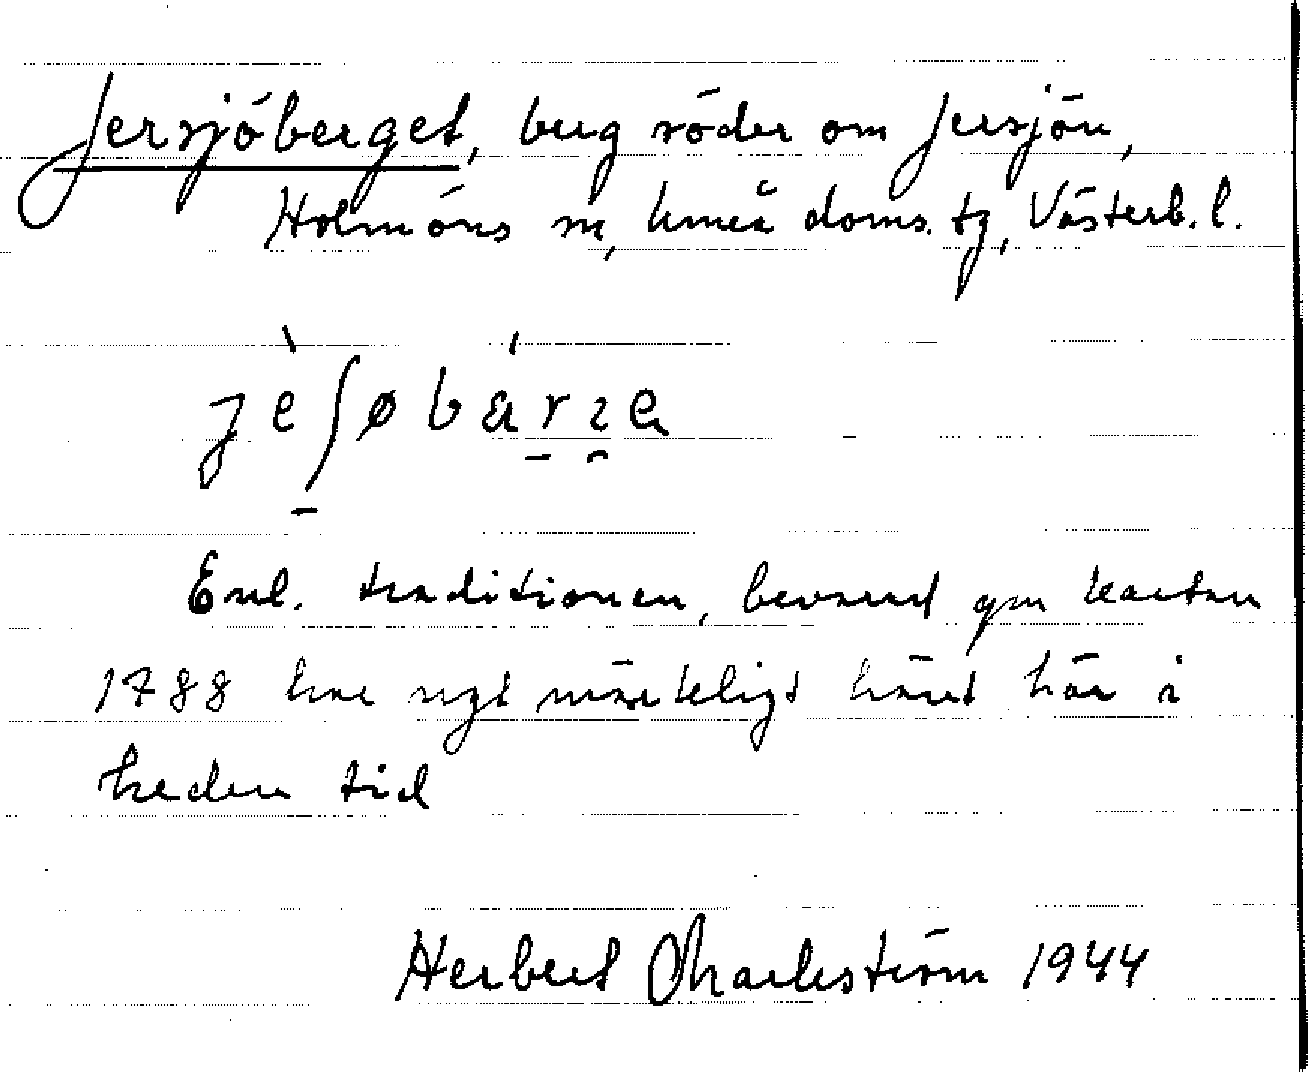 Jersjöberget, berg söder om Jersjön,
Holmöns sn, Umeå doms. tg, Västerb. l.
jèʃøbárʐa
Enl. traditionen, bevarad gm kartan
1788 har ngt märkligt hänt här i
heden tid
Herbert Charleström 1944